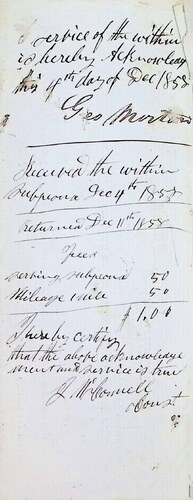 service of the within
is hereby Acknowledg
this 4th day of Dec 1858
Geo Morton
Received the within
Subpoena Dec 4th 1858
returned Dec 11th 1858
Fees
serving subpoena 50
Mileage mile 50
$1.00
I hereby certify
that the above acknowledge
ment and service is true
J. McConnell
Const